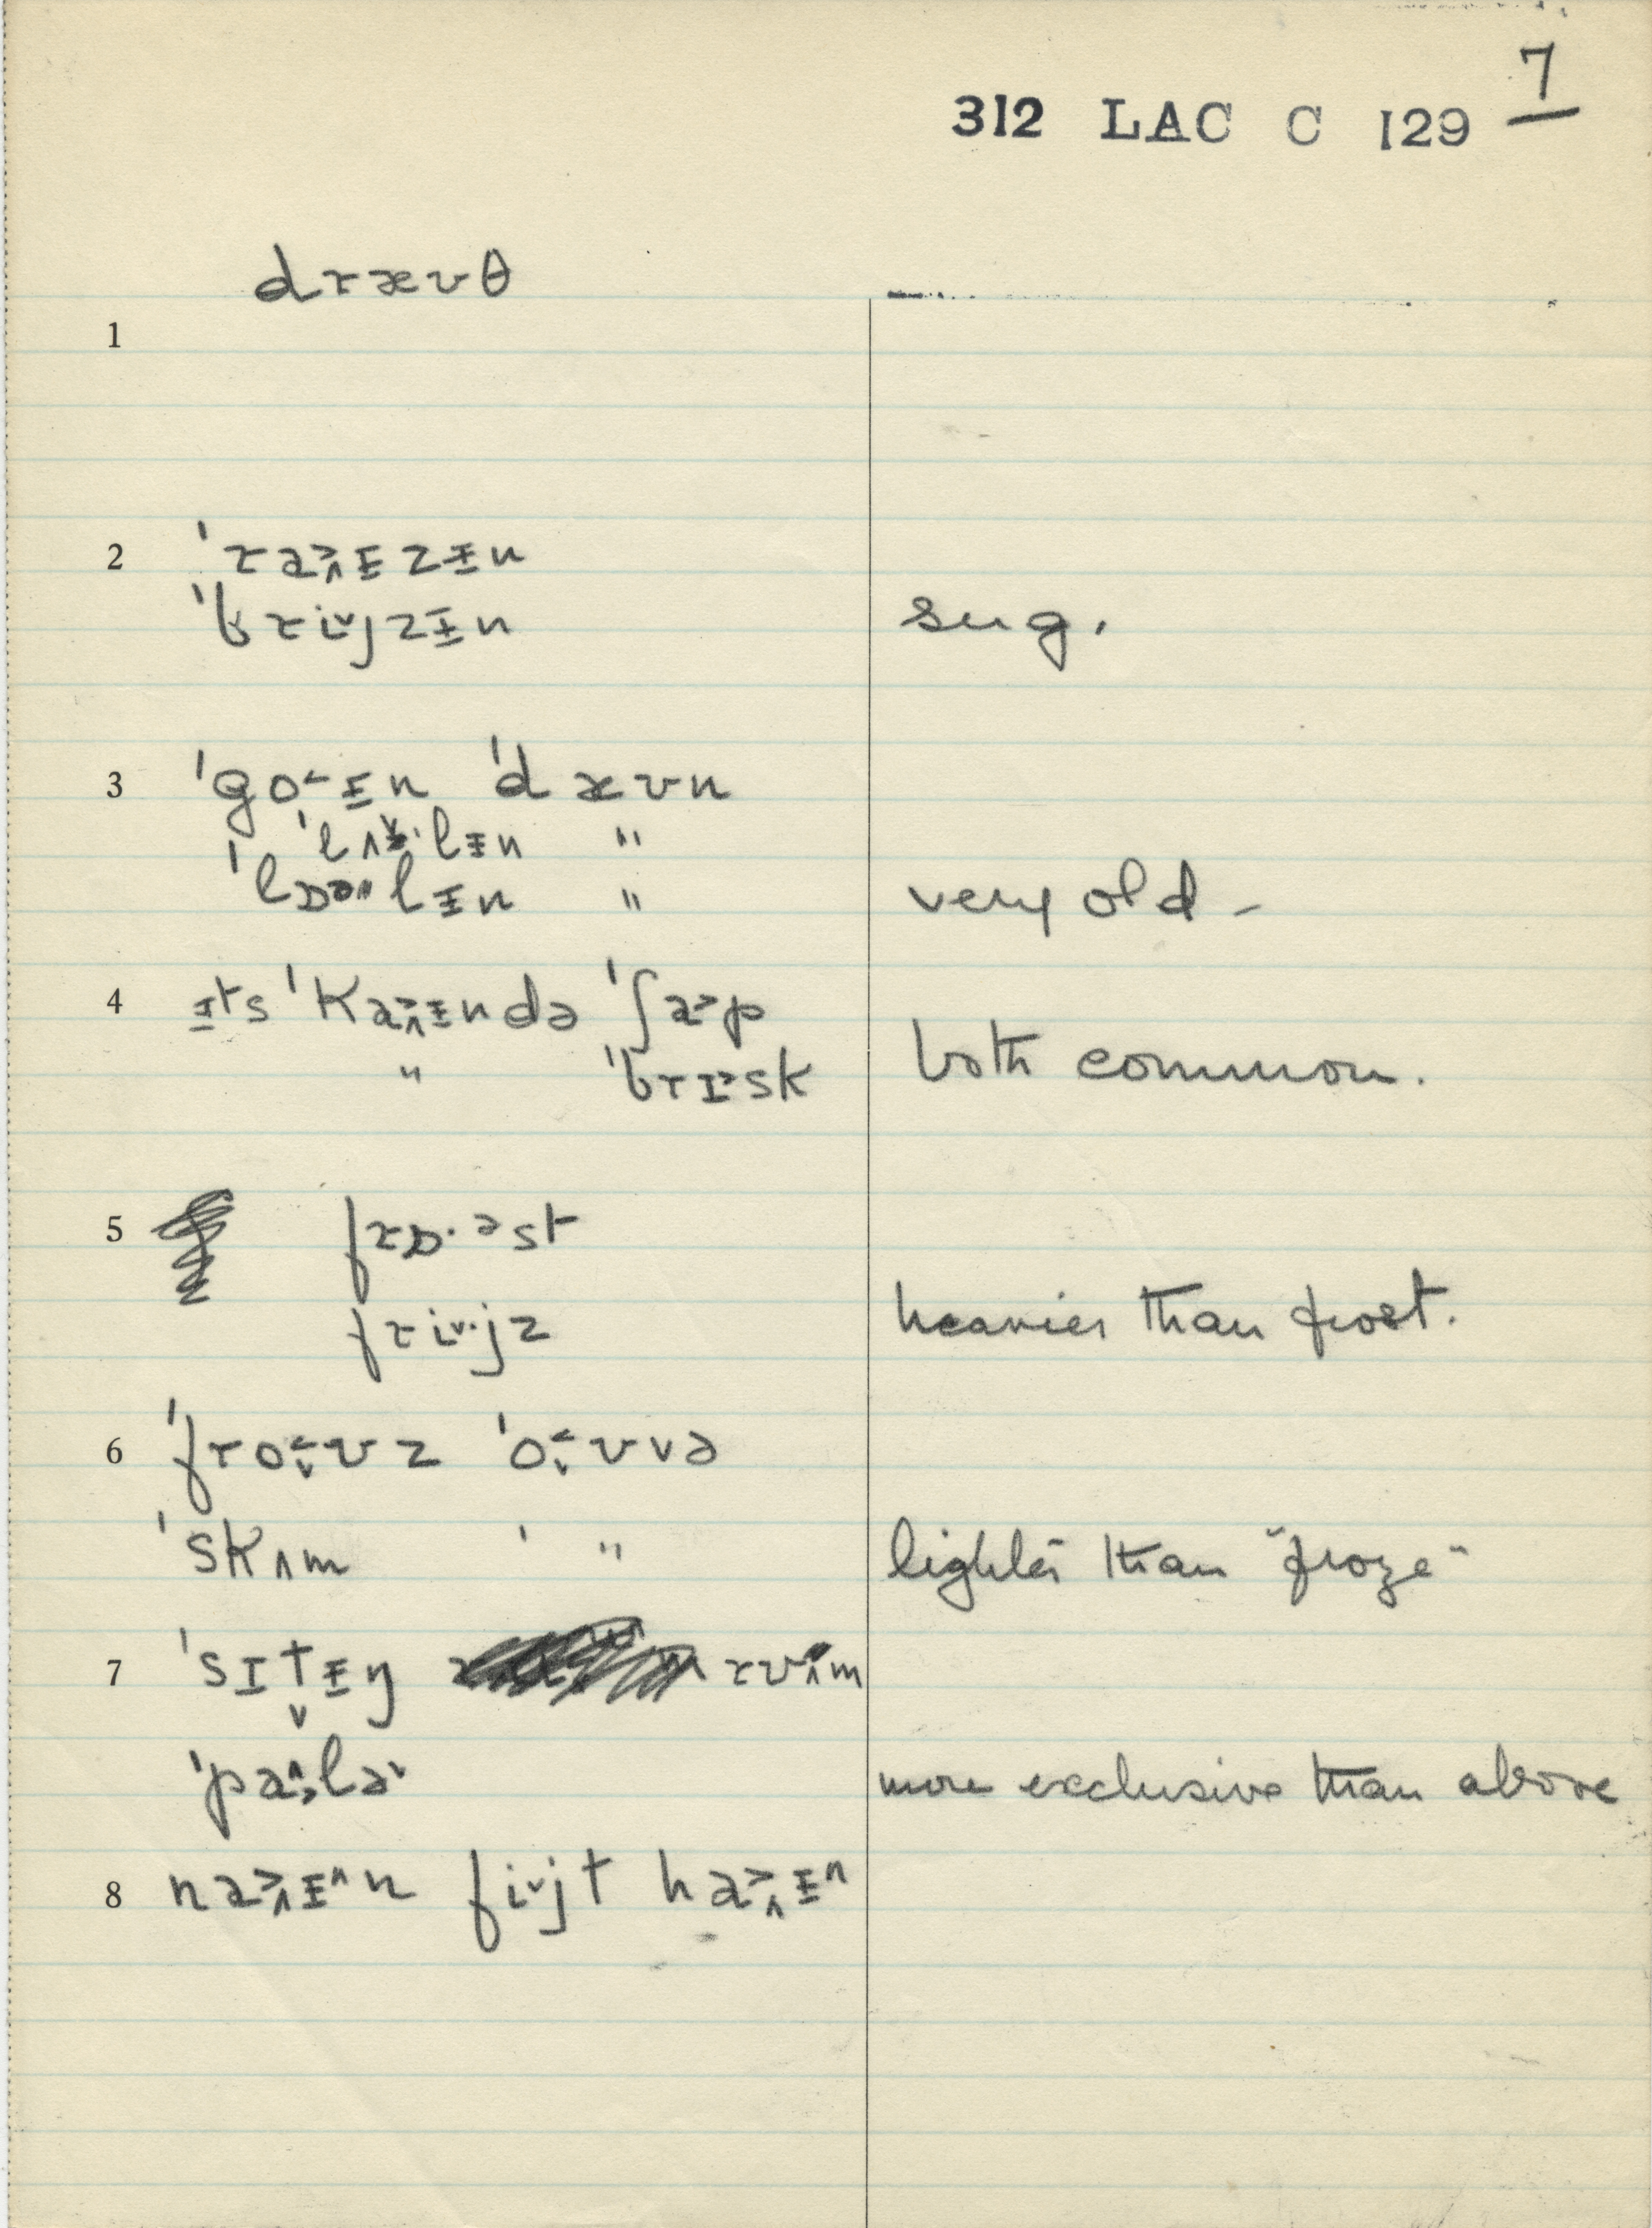 7
312 LAC C 129
dræʊθ
1
2 ˈraɨzɨn
ˈbrijzɨn sug.
3 ˈgoɨn ˈdæʊn
ˈlʌlɨn "
ˈlɒəlɨn " very old -
4 ɨts ˈkaɨndə ˈʃap
" ˈbrɪsk both common.
5 frɒ·əst
frijz heavier than frost.
6 ˈfroʊz ˈoʊvə
ˈskʌm ˈ " lighter than "froze"
7 ˈsɪtɨŋ rʊm
ˈpalə more exclusive than above
8 naɨn fijt haɨ